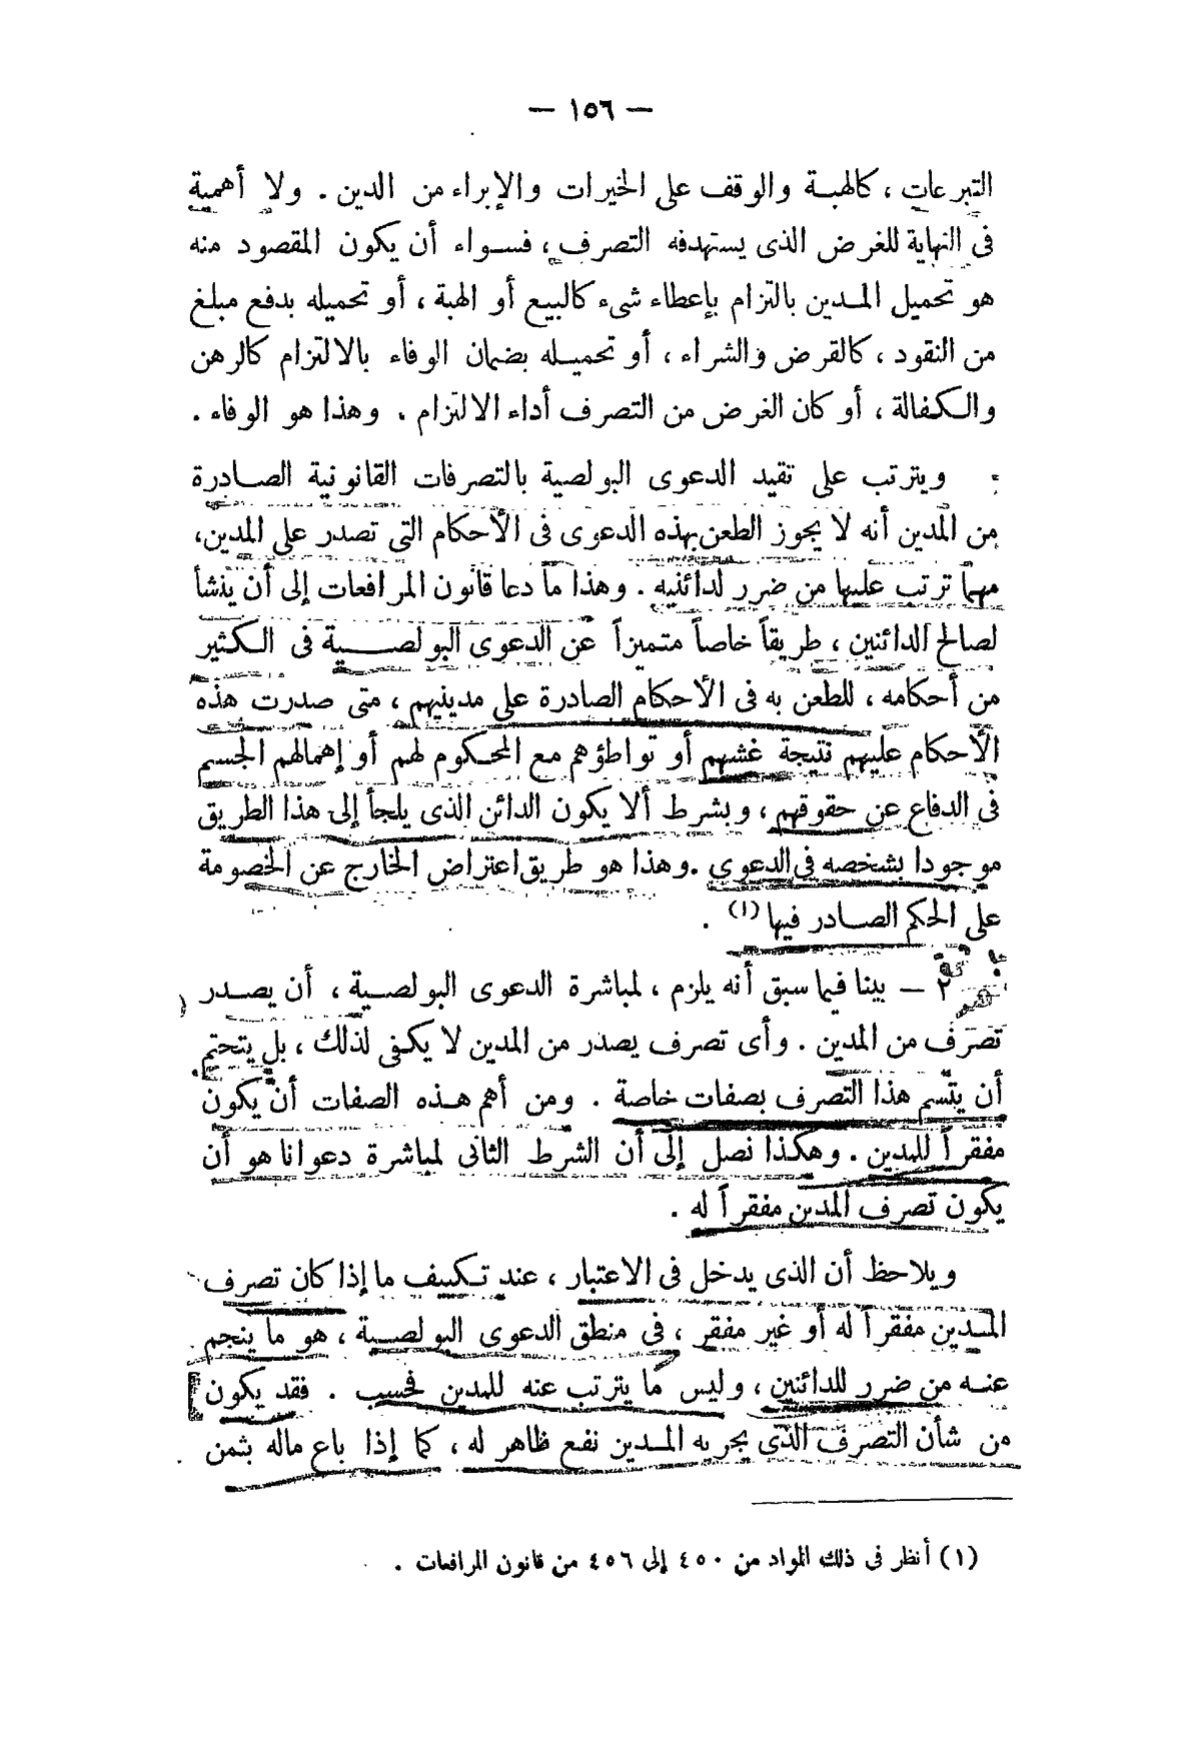 — ١٥٦ —
التبرعات ، كالهبة والوقف على الخيرات والإبراء من الدين . ولا أهمية
فى النهاية للغرض الذى يستهدفه التصرف ، فسواء أن يكون المقصود منه
هو تحميل المدين بالتزام بإعطاء شىء كالبيع أو الهبة ، أو تحميله بدفع مبلغ
من النقود ، كالقرض والشراء ، أو تحميله بضمان الوفاء بالالتزام كالرهن
والكفالة ، أو كان الغرض من التصرف أداء الالتزام . وهذا هو الوفاء .
ويترتب على تقيد الدعوى البولصية بالتصرفات القانونية الصادرة
من المدين أنه لا يجوز الطعن بهذه الدعوى فى الأحكام التى تصدر على المدين،
مهما ترتب عليها من ضرر لدائنيه . وهذا ما دعا قانون المرافعات إلى أن ينشأ
لصالح الدائنين ، طريقاً خاصاً متميزاً عن الدعوى البولصية فى الكثير
من أحكامه ، للطعن به فى الأحكام الصادرة على مدينيهم ، متى صدرت هذه
الأحكام عليهم نتيجة غشهم أو تواطؤهم مع المحكوم لهم أو إهمالهم الجسم
فى الدفاع عن حقوقهم ، وبشرط ألا يكون الدائن الذى يلجأ إلى هذا الطريق
موجودا بشخصه فى الدعوى . وهذا هو طريق اعتراض الخارج عن الخصومة
على الحكم الصادر فيها (١) .
٢ — بينا فيما سبق أنه يلزم ، لمباشرة الدعوى البولصية ، أن يصدر
تصرف من المدين . وأى تصرف يصدر من المدين لا يكفى لذلك ، بل يتحتم
أن يتسم هذا التصرف بصفات خاصة . ومن أهم هذه الصفات أن يكون
مفقراً للمدين . وهكذا نصل إلى أن الشرط الثانى لمباشرة دعوانا هو أن
يكون تصرف المدين مفقراً له .
ويلاحظ أن الذى يدخل فى الاعتبار ، عند تكييف ما إذا كان تصرف
المدين مفقراً له أو غير مفقر ، فى منطق الدعوى البولصية ، هو ما ينجم
عنه من ضرر للدائنين ، وليس ما يترتب عنه للمدين فحسب . فقد يكون
من شأن التصرف الذى يجريه المدين نفع ظاهر له ، كما إذا باع ماله بثمن
(١) أنظر فى ذلك المواد من ٤٥٠ إلى ٤٥٦ من قانون المرافعات .